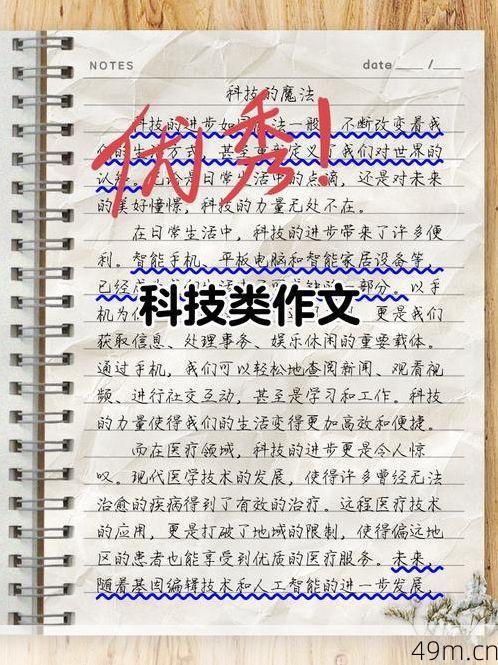 NOTES
date /
科技的魔法
优秀!
科技的进步如同魔法一般，不断改变着我
的生 方式，甚至重 定义了我们对世界的
认 论是日常生活中的点滴，还是对未来
的美好憧憬，科技的力量无处不在。
在日常生活中，科技的进步带来了许多便
利。智能手机、平板电脑和智能家居设备等，
已经 部分。以手
科技类作文
机为 更是我们
获取信息、处理事务、娱乐休闲的重要载体。
通过手机，我们可以轻松地查阅新闻、观看视
频、进行社交互动，甚至是学习和工作。科技
的力量使得我们的生活变得更加高效和便捷。
而在医疗领域，科技的进步更是令人惊
叹。现代医学技术的发展，使得许多曾经无法
治愈的疾病得到了有效的治疗。远程医疗技术
的应用，更是打破了地域的限制，使得偏远地
区的患者也能享受到优质的医疗服务。未来，
随着基因编辑技术和人工智能的进一步发展，
49m.cn